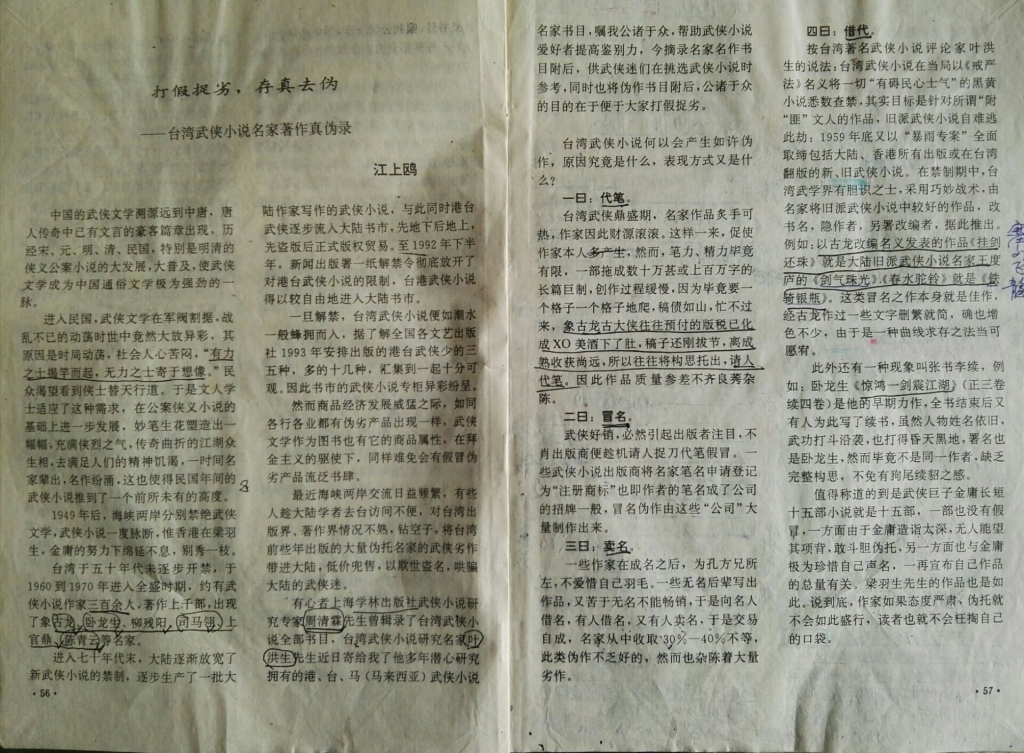 打假捉劣，存真去伪
——台湾武侠小说名家著作真伪录
江上鸥
中国的武侠文学溯源远到中唐，唐
人传奇中已有文言的豪客篇章出现，历
经宋、元、明、清、民国，特别是明清的
侠义公案小说的大发展，大普及，使武侠
文学成为中国通俗文学极为强劲的一
脉。
进入民国，武侠文学在军阀割据，战
乱不已的动荡时世中竟然大放异彩，其
原因是时局动荡，社会人心苦闷，“有力
之士揭竿而起，无力之士寄于想像。”民
众渴望看到侠士替天行道。于是文人学
士适应了这种需求，在公案侠义小说的
基础上进一步发展，妙笔生花塑造出一
幅幅充满侠烈之气，传奇曲折的江湖众
生相，去满足人们的精神饥渴，一时间名
家辈出，名作纷涌，这也使得民国年间的
武侠小说推到了一个前所未有的高度。
1949年后，海峡两岸分别禁绝武侠
文学，武侠小说一度脉断，惟香港在梁羽
生，金庸的努力下绵延不息，别秀一枝。
台湾于五十年代末逐步开禁，于
1960到1970年进入全盛时期，约有武
侠小说作家三百余人，著作上千部，出现
了象古龙、卧龙生、柳残阳、司马翎、上
官鼎、陈青云等名家。
进入七十年代末，大陆逐渐放宽了
新武侠小说的禁制，逐步生产了一批大
·56·
陆作家写作的武侠小说，与此同时港台
武侠逐步流入大陆书市，先地下后地上，
先盗版后正式版权贸易。至1992年下半
年，新闻出版署一纸解禁令彻底放开了
对港台武侠小说的限制，台港武侠小说
得以较自由地进入大陆书市。
一旦解禁，台湾武侠小说便如潮水
一般蜂拥而入，据了解全国各文艺出版
社1993年安排出版的港台武侠少的三
五种，多的十几种，汇集到一起十分可
观。因此书市的武侠小说专柜异彩纷呈。
然而商品经济发展威猛之际，如同
各行各业都有伪劣产品出现一样，武侠
文学作为图书也有它的商品属性，在拜
金主义的驱使下，同样难免会有假冒伪
劣产品流泛书肆。
最近海峡两岸交流日益频繁，有些
人趁大陆学者去台访问不便，对台湾出
版界、著作界情况不熟，钻空子，将台湾
前些年出版的大量伪托名家的武侠劣作
带进大陆，低价兜售，以欺世盗名，哄骗
大陆的武侠迷。
有心者上海学林出版社武侠小说研
究专家周清霖先生曾辑录了台湾武侠小
说全部书目，台湾武侠小说研究名家叶
洪生先生近日寄给我了他多年潜心研究
拥有的港、台、马（马来西亚）武侠小说
名家书目，嘱我公诸于众，帮助武侠小说
爱好者提高鉴别力，今摘录名家名作书
目附后，供武侠迷们在挑选武侠小说时
参考，同时也将伪作书目附后，公诸于众
的目的在于便于大家打假捉劣。
台湾武侠小说何以会产生如许伪
作，原因究竟是什么，表现方式又是什
么？
一曰：代笔。
台湾武侠鼎盛期，名家作品炙手可
热，作家因此财源滚滚。这样一来，促使
作家本人多产生，然而，笔力、精力毕竟
有限，一部拖成数十万甚或上百万字的
长篇巨制，创作过程缓慢，因为毕竟要一
个格子一个格子地爬，稿债如山，忙不过
来，象古龙古大侠往往预付的版税已化
成XO美酒下了肚，稿子还刚拔节，离成
熟收获尚远，所以往往将构思托出，请人
代笔。因此作品质量参差不齐良莠杂
陈。
二曰：冒名。
武侠好销，必然引起出版者注目，不
肖出版商便趁机请人捉刀代笔假冒。一
些武侠小说出版商将名家笔名申请登记
为“注册商标”也即作者的笔名成了公司
的招牌一般，冒名伪作由这些“公司”大
量制作出来。
三曰：卖名。
一些作家在成名之后，为孔方兄所
左，不爱惜自己羽毛。一些无名后辈写出
作品，又苦于无名不能畅销，于是向名人
借名，有人借名，又有人卖名，于是交易
自成，名家从中收取30%—40%不等，
此类伪作不乏好的，然而也杂陈着大量
劣作。
四曰：借代。
按台湾著名武侠小说评论家叶洪
生的说法：台湾武侠小说在当局以《戒严
法》名义将一切“有碍民心士气”的黑黄
小说悉数查禁，其实目标是针对所谓“附
“匪”文人的作品，旧派武侠小说自难逃
此劫；1959年底又以“暴雨专案”全面
取缔包括大陆、香港所有出版或在台湾
翻版的新、旧武侠小说。在禁制期中，台
湾武学界有胆识之士，采用巧妙战术，由
名家将旧派武侠小说中较好的作品，改
书名，隐作者，另署改编者，据此推出。
例如：以古龙改编名义发表的作品《挂剑
还珠》就是大陆旧派武侠小说名家王度
庐的《剑气珠光》，《春水驼铃》就是《铁
骑银瓶》。这类冒名之作本身就是佳作，
经古龙作过一些文字删繁就简，确也增
色不少，由于是一种曲线求存之法当可
愿宥。
此外还有一种现象叫张书李续，例
如：卧龙生《惊鸿一剑震江湖》（正三卷
续四卷）是他的早期力作，全书结束后又
有人为此写了续书，虽然人物姓名依旧，
武功打斗沿袭，也打得昏天黑地，署名也
是卧龙生，然而毕竟不是同一作者，缺乏
完整构思，不免有狗尾续貂之感。
值得称道的到是武侠巨子金庸长短
十五部小说就是十五部，一部也没有假
冒，一方面由于金庸造诣太深，无人能望
其项背，敢斗胆伪托，另一方面也与金庸
极为珍惜自己声名，一再宣布自己作品
的总量有关。梁羽生先生的作品也是如
此。说到底，作家如果态度严肃、伪托就
不会如此盛行，读者也就不会枉掏自己
的口袋。
·57·